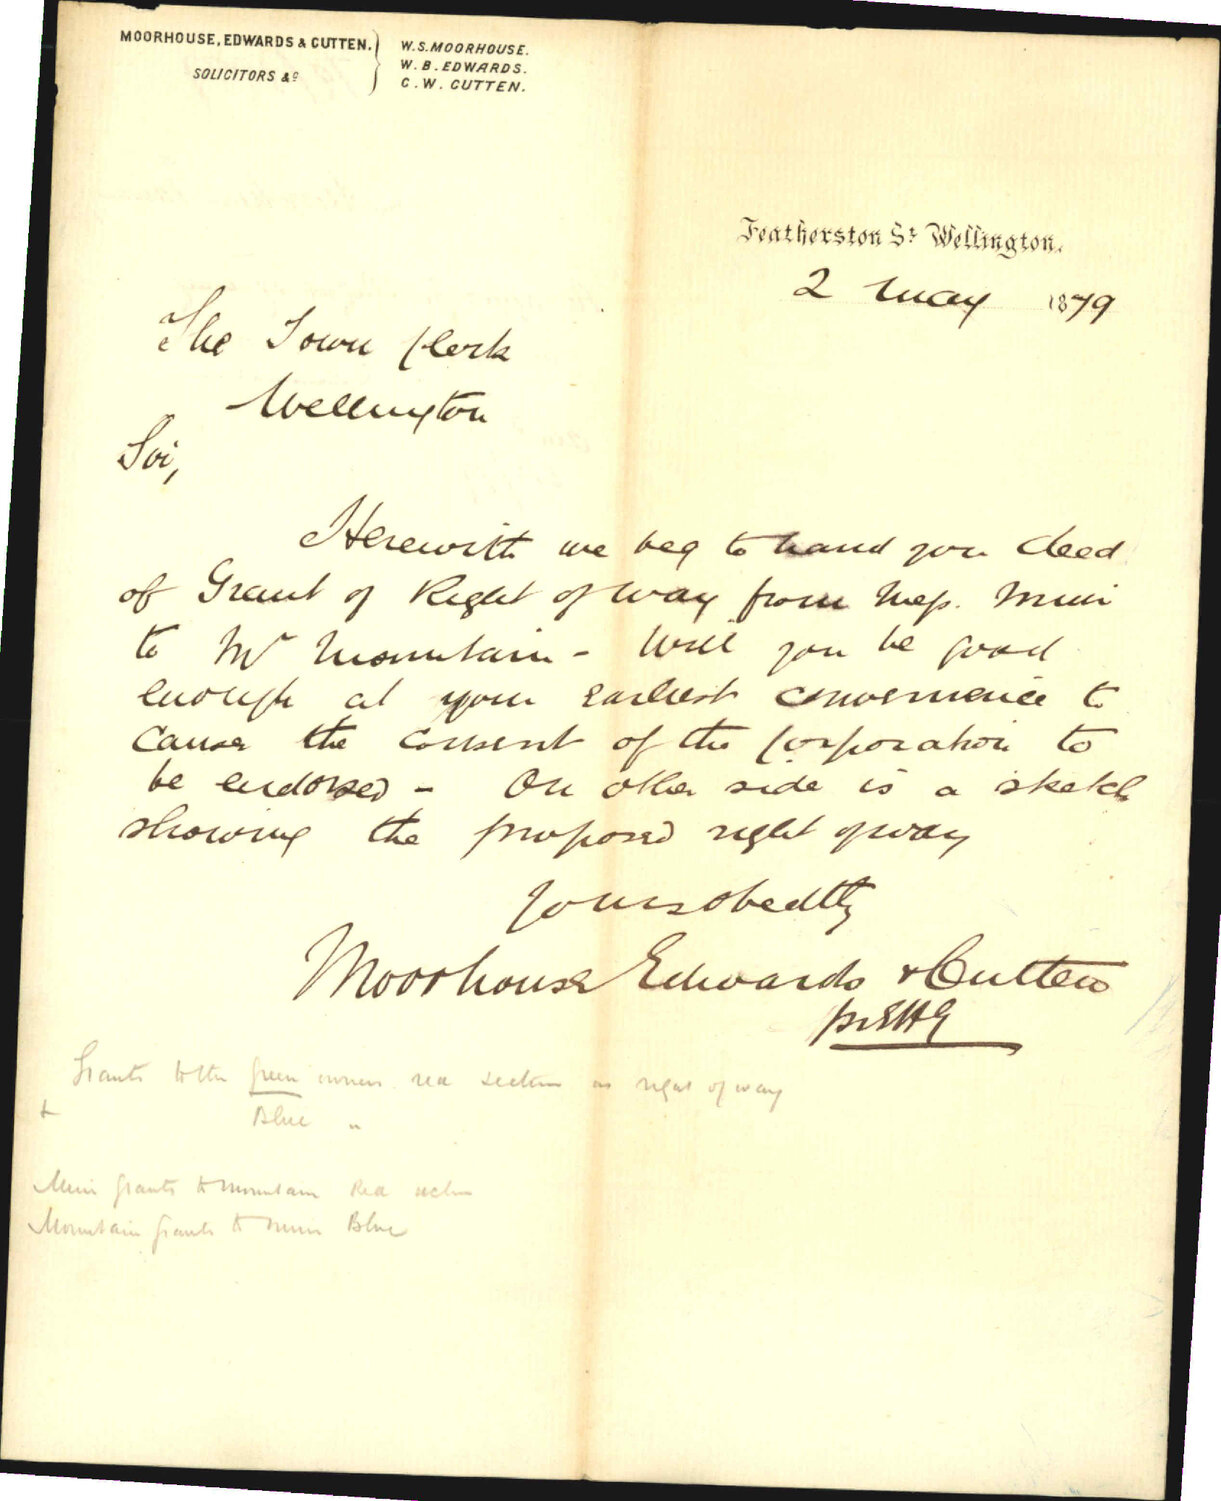 MOORHOUSE, EDWARDS & CUTTEN.
SOLICITORS &c
W. S. MOORHOUSE.
W. B. EDWARDS.
C. W. CUTTEN.
Featherston St Wellington.
2 May 1879
The Town Clerk
Wellington
Sir,
Herewith we beg to hand you deed
of Grant of Right of way from Mess. Muir
to Mr Mountain - Will you be good
enough at your earliest convenience to
cause the consent of the Corporation to
be endorsed - On other side is a sketch
showing the proposed right of way
Yours obedtly
Moorhouse Edwards & Cutten
pr EHG
Grants to the green owners red section as right of way
+ Blue "
Muir grants to Mountain Red section
Mountain grants to Muir Blue